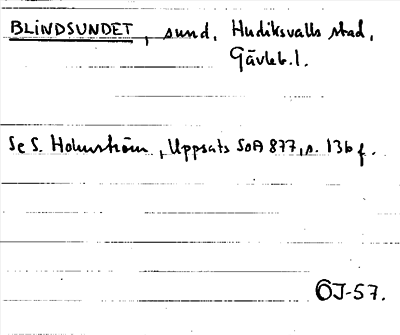 BLINDSUNDET, sund, Hudiksvalls stad,
Gävleb. l.
Se S. Holmström, Uppsats SOA 877, s. 136 f.
OJ-57.